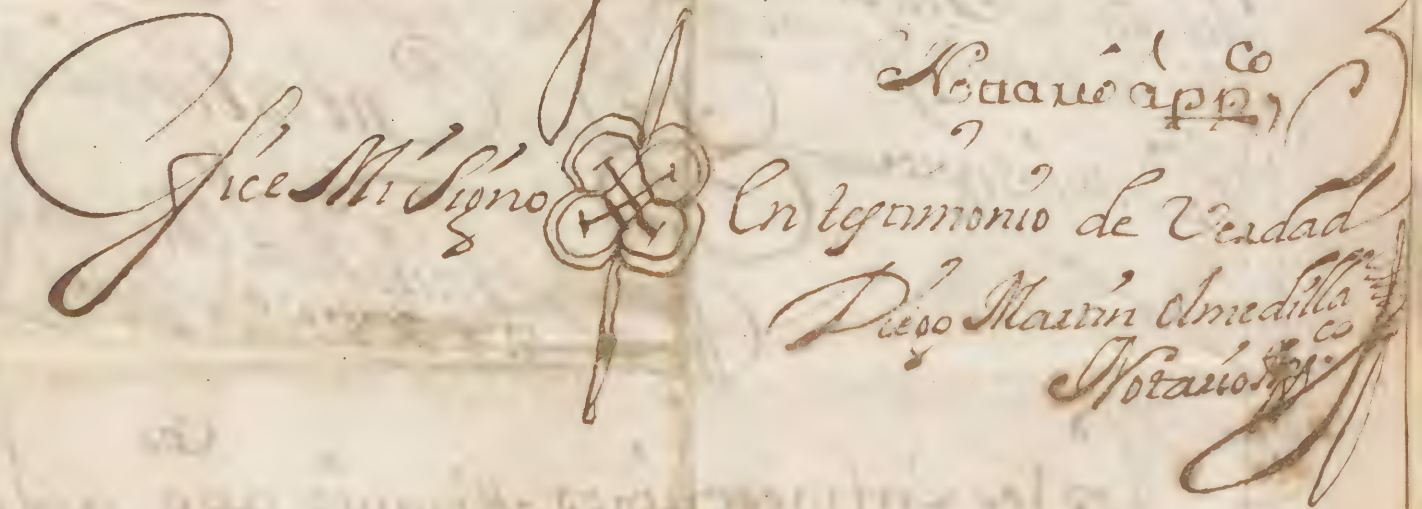 Notario app.co
fice Mi Signo En testimonio de Verdad
Diego Martin Olmedilla
Notario